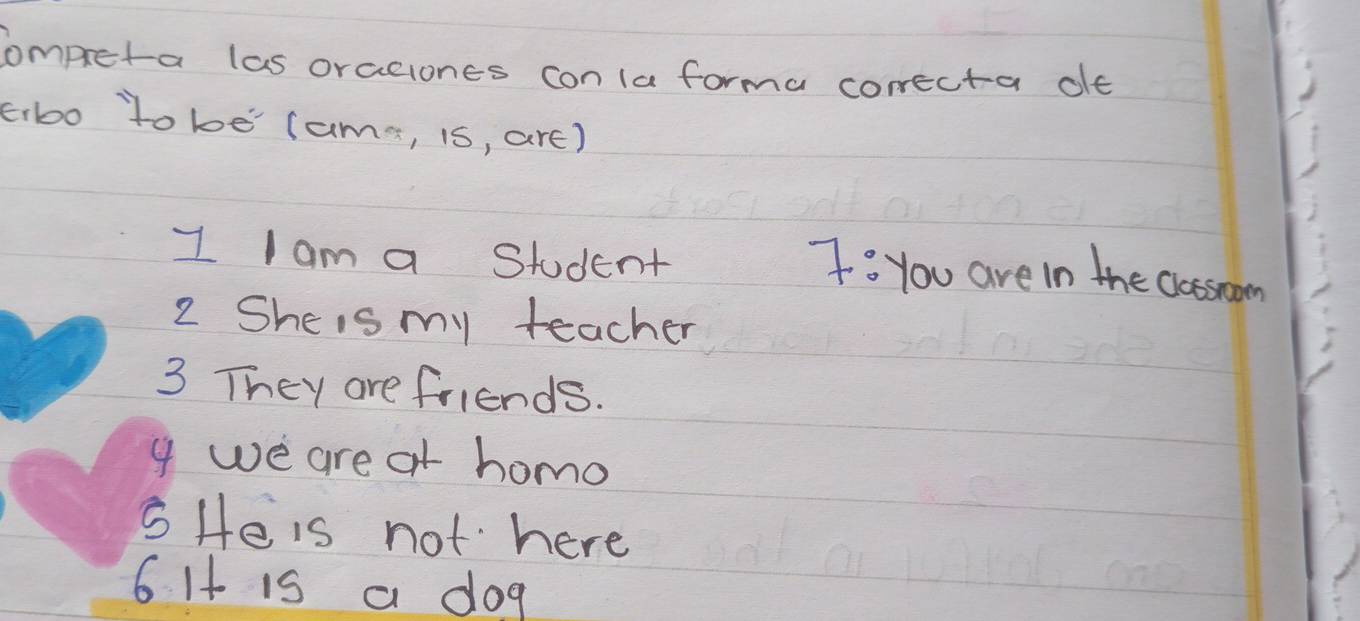 Compreta las oraciones con la forma correcta de
erbo "to be" (am, is, are)
1 I am a Student
2 She is my teacher
3 They are friends.
4 we are at homo
5 He is not here
6 It is a dog
7: you are in the classroom